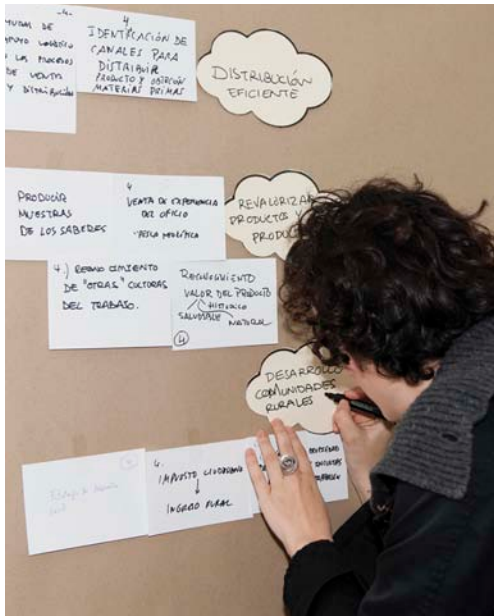 -4-
DE
APOYO LOGÍSTICO
LOS PROCESOS
DE VENTA
Y DISTRIBUCIÓN
4
IDENTIFICACIÓN DE
CANALES PARA
DISTRIBUIR
PRODUCTO Y OBTENCIÓN
MATERIAS PRIMAS
DISTRIBUCIÓN
EFICIENTE
PRODUCIR
MUESTRAS
DE LOS SABERES
4
VENTA DE EXPERIENCIA
DEL OFICIO
REVALORIZAR
PRODUCTOS Y
4.) RECONOCIMIENTO
DE "OTRAS" CULTURAS
DEL TRABAJO.
RECONOCIMIENTO
VALOR DEL PRODUCTO
HISTÓRICO
SALUDABLE
NATURAL
4
DESARROLLO
COMUNIDADES
RURALES
4.
IMPUESTO CIUDADANO
↓
INGRESO RURAL